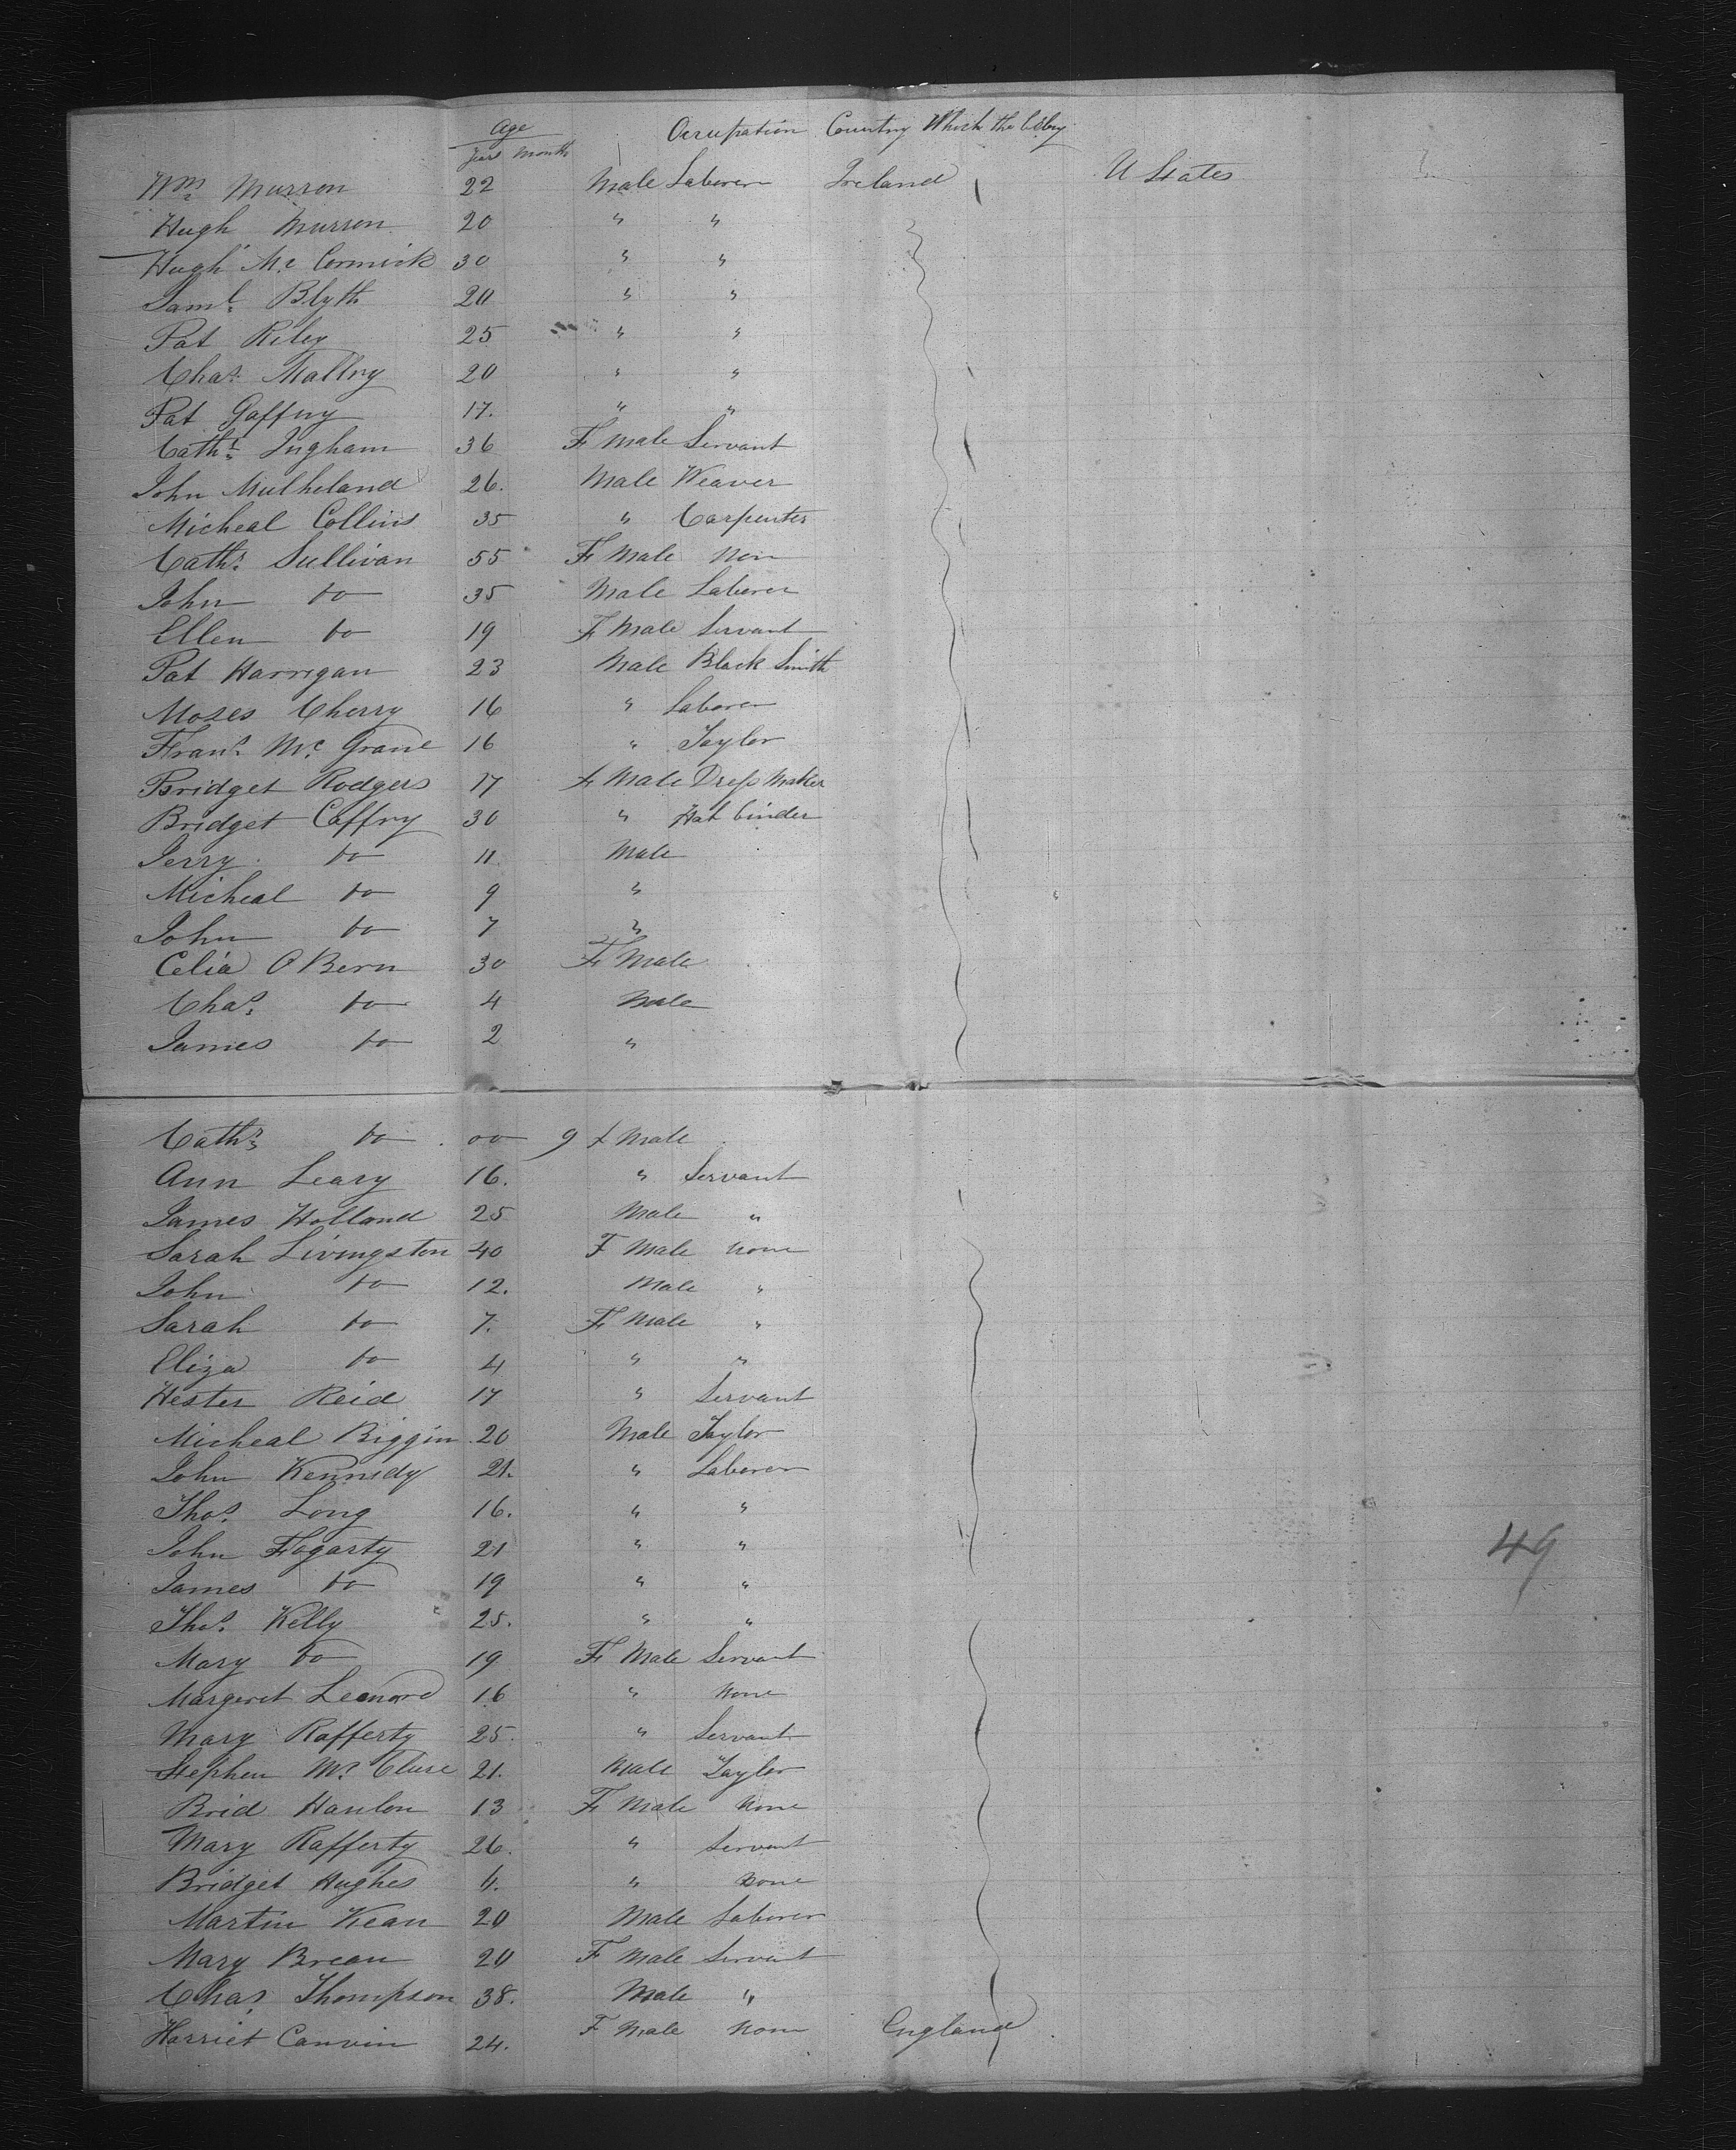 Age Occupation Country Which the belong
Years Month
Wm Murron 22 Male Laborer Ireland U States
Hugh Murron 20 " "
Hugh Mc Cormick 30 " "
Saml Blyth 20 " "
Pat Riley 25 " "
Chas Mallny 20 " "
Pat Gaffny 17. " "
Cath Ingham 36 F Male Servant
John Mulheland 26. Male Weaver
Micheal Collins 35 " Carpenter
Cath Sullivan 55 F Male Non
John do 35 Male Laborer
Ellen do 19 F Male Servant
Pat Harrigan 23 Male Black Smith
Moses Cherry 16 " Laborer
Frans Mc Grane 16 " Taylor
Bridget Rodgers 17 F Male Dress Maker
Bridget Caffry 30 " Hat binder
Jerry do 11 Male
Micheal do 9 "
John do 7 "
Celia O Bern 30 F Male
Chas do 4 Male
James do 2 "
Cath do 00 9 F Male
Ann Leary 16. " Servant
James Holland 25 Male "
Sarah Livingston 40 F Male None
John do 12. Male "
Sarah do 7. F Male "
Eliza do 4 " "
Hester Reid 17 " Servant
Micheal Biggin 20 Male Taylor
John Kennedy 21. " Laborer
Thos Long 16. " "
John Fogarty 21 " "
James do 19 " "
Thos Kelly 25. " "
Mary do 19 F Male Servant
Margeret Leonard 16 " None
Mary Rafferty 25. " Servant
Stephen Mc Clure 21. Male Taylor
Brid Hanlon 13 F Male None
Mary Rafferty 26. " Servant
Bridget Hughes " None
Martin Kean 20 Male Laborer
Mary Brean 20 F Male Servant
Chas Thompson 38. Male "
Harriet Canvin 24. F Male None England
49